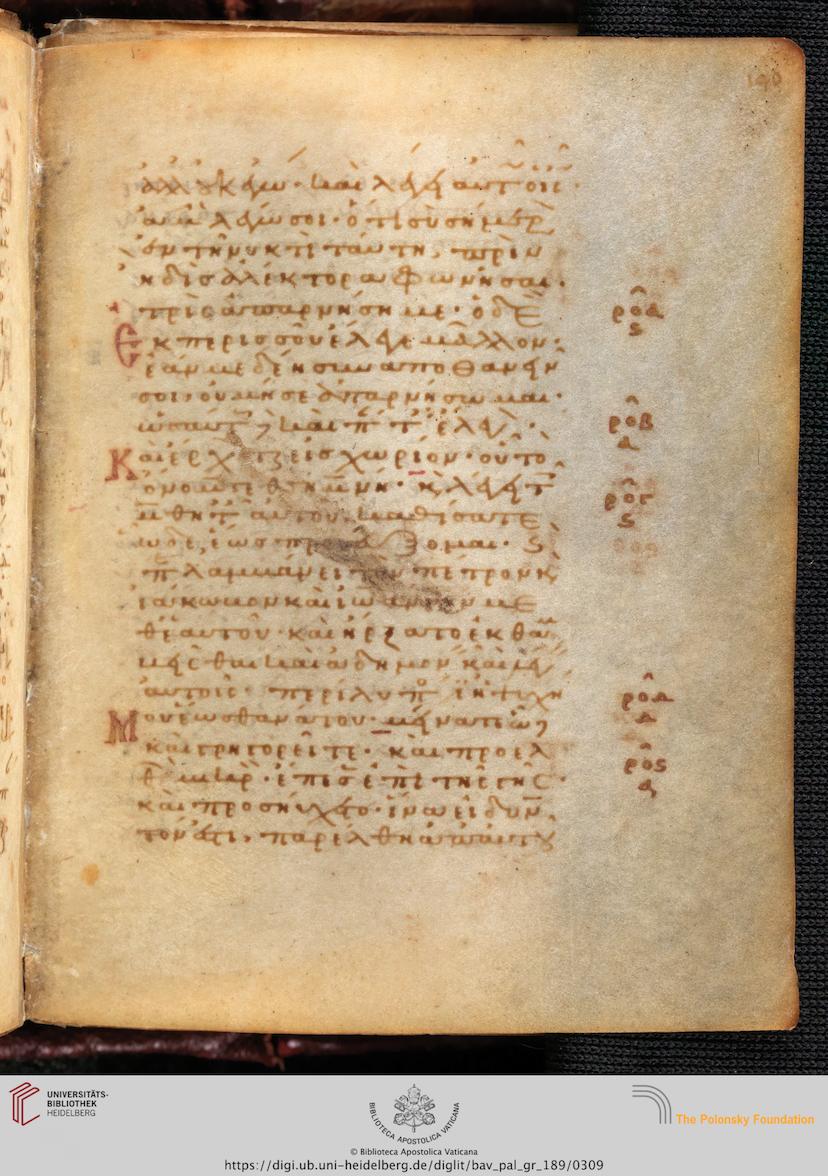 140
ἀλλ οὐκ ἐγώ· καὶ λέγει αὐτ ὁ ις·
ἀμὴν λέγω σοι· ὅτι σὺ σήμερ
ἐν τῆ νυκτὶ ταύτη, πρὶν
ἢ δὶς ἀλέκτορα φωνῆσαι·
τρὶς ἀπαρνήση με· ὁ δὲ
ἐκ περισσοῦ ἔλεγε μᾶλλον·
ἐάν με δέη συναποθανεῖν
σοι· οὐ μή σε ἀπαρνήσωμαι·
ὡσαύτ καὶ π τ ἔλεγ·
Καὶ ἔρχται εἰς χωρίον· οὗ τὸ
ὄνομα γεθσημανη· κ λέγει τ
μαθητ αὐτοῦ. καθίσατε
ὧδε, ἕως προσεύξομαι·
π λαμβάνει τὸν πέτρον κ
ἰάκωβον καὶ ἰωάννην με
θ ἑαυτοῦ· καὶ ἤρξατο ἐκθαμ
βεῖσθαι καὶ ἀδημονεῖν· καὶ λέγ
αὐτοῖς· περίλυπ ἡ ψυχή
μου ἕως θανάτου· μείνατε ὧδ
καὶ γρηγορεῖτε· καὶ προελ
θὼν μικρ· ἔπεσεν ἐπὶ τῆς γῆς·
καὶ προσηύχετο· ἵνα εἰ δυν
τόν ἐστι, παρέλθη ἀπ αὐτοῦ
ροα
ς
ροβ
δ
ρογ
ς
ροδ
δ
ροε
α
UNIVERSITÄTS-
BIBLIOTHEK
HEIDELBERG
BIBLIOTECA APOSTOLICA VATICANA
The Polonsky Foundation
© Biblioteca Apostolica Vaticana
https://digi.ub.uni-heidelberg.de/diglit/bav_pal_gr_189/0309